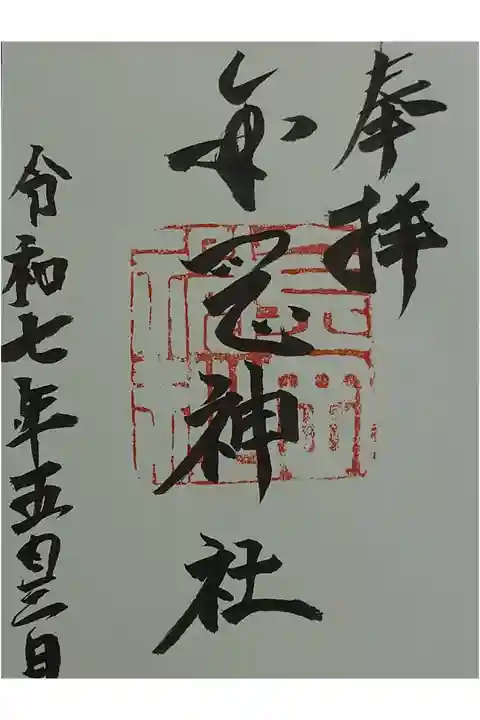 奉拝
神社
令和七年五月三日